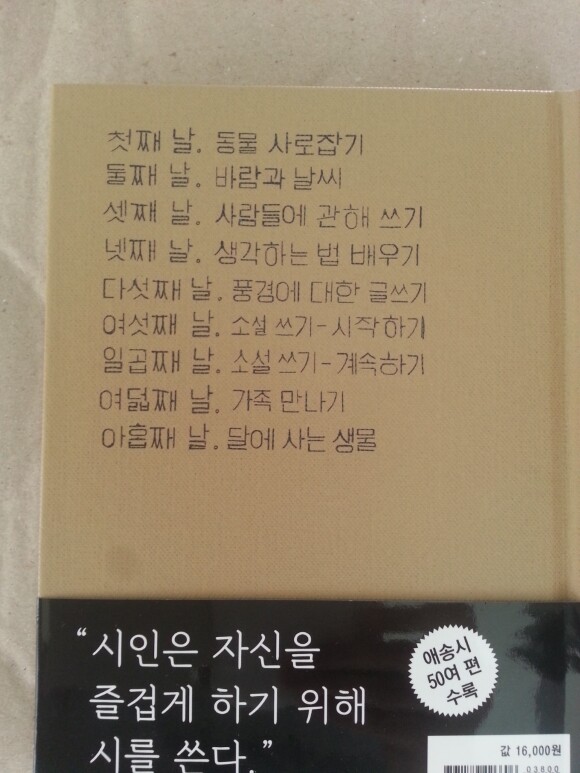 첫째 날. 동물 사로잡기
둘째 날. 바람과 날씨
셋째 날. 사람들에 관해 쓰기
넷째 날. 생각하는 법 배우기
다섯째 날. 풍경에 대한 글쓰기
여섯째 날. 소설 쓰기-시작하기
일곱째 날. 소설 쓰기-계속하기
여덟째 날. 가족 만나기
아홉째 날. 달에 사는 생물
“시인은 자신을
즐겁게 하기 위해
시를 쓴다.”
애송시
50여 편
수록
값 16,000원
03800